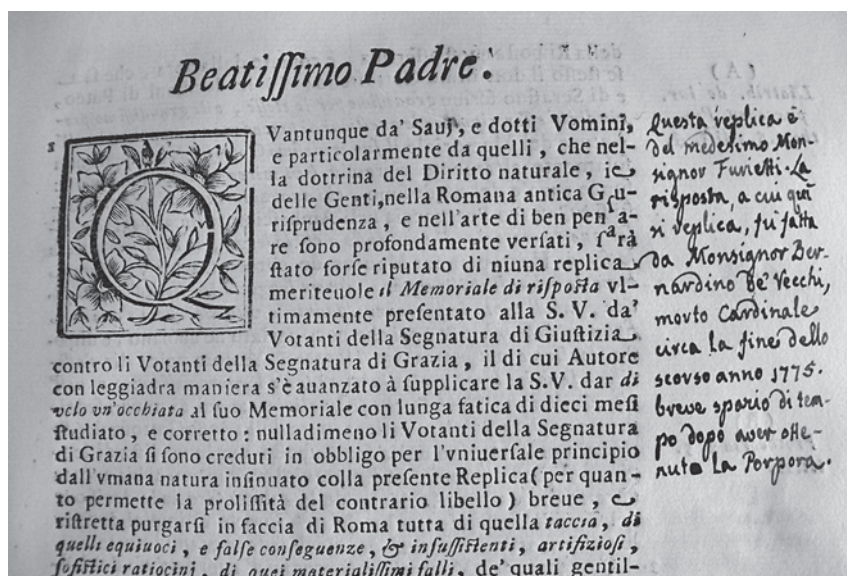 Beatiſſimo Padre.
QVantunque da' Sauj, e dotti Vomini,
e particolarmente da quelli, che nel-
la dottrina del Diritto naturale, ie
delle Genti, nella Romana antica Gſu-
riſprudenza, e nell'arte di ben penſa-
re ſono profondamente verſati, ſarà
ſtato forſe riputato di niuna replica
meriteuole il Memoriale di riſpoſta vl-
timamente preſentato alla S. V. da'
Votanti della Segnatura di Giuſtizia
contro li Votanti della Segnatura di Grazia, il di cui Autore
con leggiadra maniera s'è auanzato à ſupplicare la S.V. dar di
volo vn'occhiata al ſuo Memoriale con lunga fatica di dieci meſi
ſtudiato, e corretto: nulladimeno li Votanti della Segnatura
di Grazia ſi ſono creduti in obbligo per l'vniuerſale principio
dall'vmana natura inſinuato colla preſente Replica (per quan-
to permette la proliſſità del contrario libello) breue, e
riſtretta purgarſi in faccia di Roma tutta di quella taccia, di
quelli equiuoci, e falſe conſeguenze, & inſuſſiſtenti, artifizioſi,
ſofiſtici ratiocinj, di quei materialiſſimi falli, de' quali gentil-
Questa replica è
del medesimo Mon-
signor Furietti. La
risposta, a cui quì
si replica, fu fatta
da Monsignor Ber-
nardino de' Vecchi,
morto Cardinale
circa la fine dello
scorso anno 1775.
breve spazio di tem-
po dopo aver otte-
nuta la Porpora.